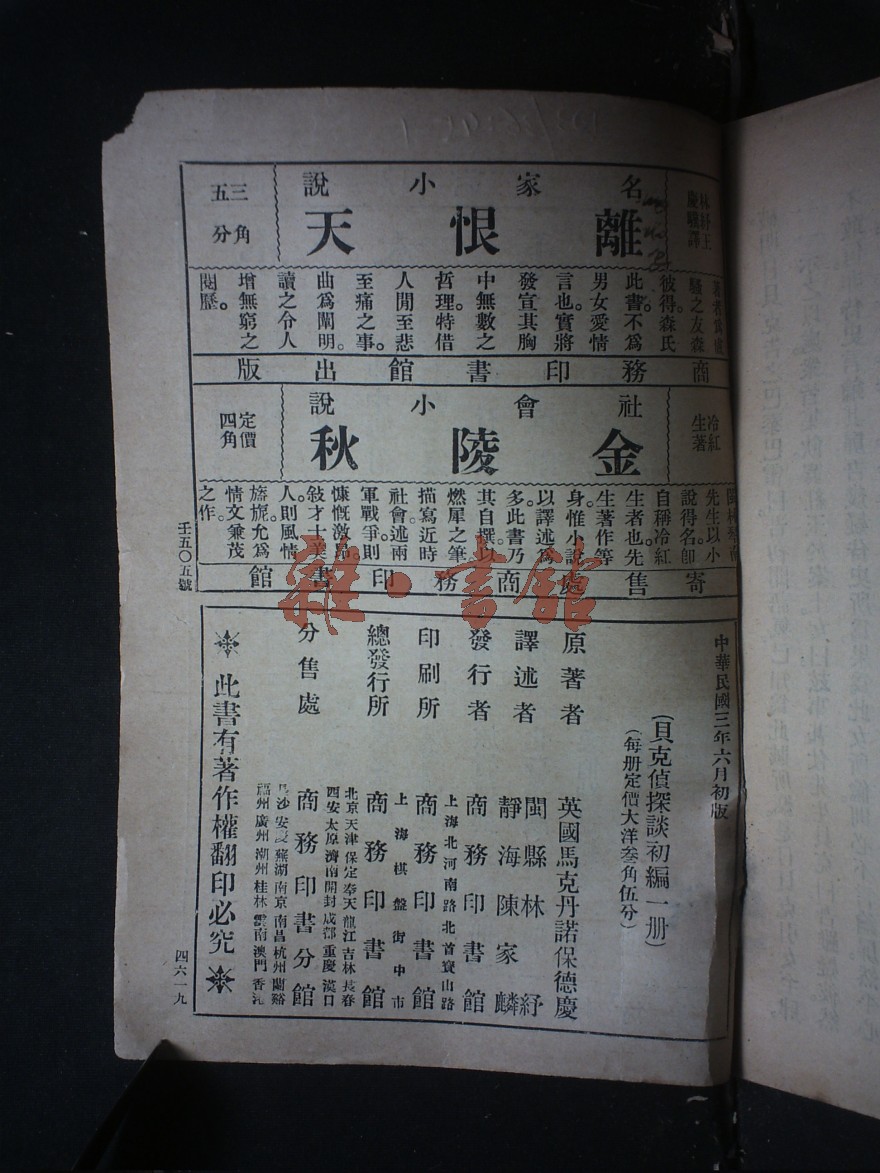 名家小說
離恨天
林紓王
慶驥譯
三角
五分
騷之友森
彼得森氏
此書不爲
男女愛情
言也。實將
發宣其胸
中無數之
哲理特借
人閒至悲
至痛之事。
曲爲闡明。
讀之令人
增無窮之
閱歷。
商務印書館出版
社會小說
金陵秋
冷紅
生著
定價
四角
先生以小
說得名卽
自稱冷紅
生者也先
生著作等
身惟小說
以譯述爲
多此書乃
其自撰以
燃犀之筆
描寫近時
社會述兩
軍戰爭則
慷慨激昂。
敍才士美
人則風情
旖旎。允爲
情文兼茂
之作。
寄售處商務印書館
壬五〇五號
中華民國三年六月初版
(貝克偵探談初編一册)
(每册定價大洋叁角伍分)
原著者 英國馬克丹諾保德慶
譯述者 閩縣林紓
靜海陳家麟
發行者 商務印書館
上海北河南路北首寶山路
印刷所 商務印書館
上海棋盤街中市
總發行所 商務印書館
北京天津保定奉天龍江吉林長春
西安太原濟南開封成都重慶漢口
分售處 商務印書分館
長沙安慶蕪湖南京南昌杭州蘭谿
福州廣州潮州桂林雲南澳門香港
此書有著作權翻印必究
四六一九
雜·書館